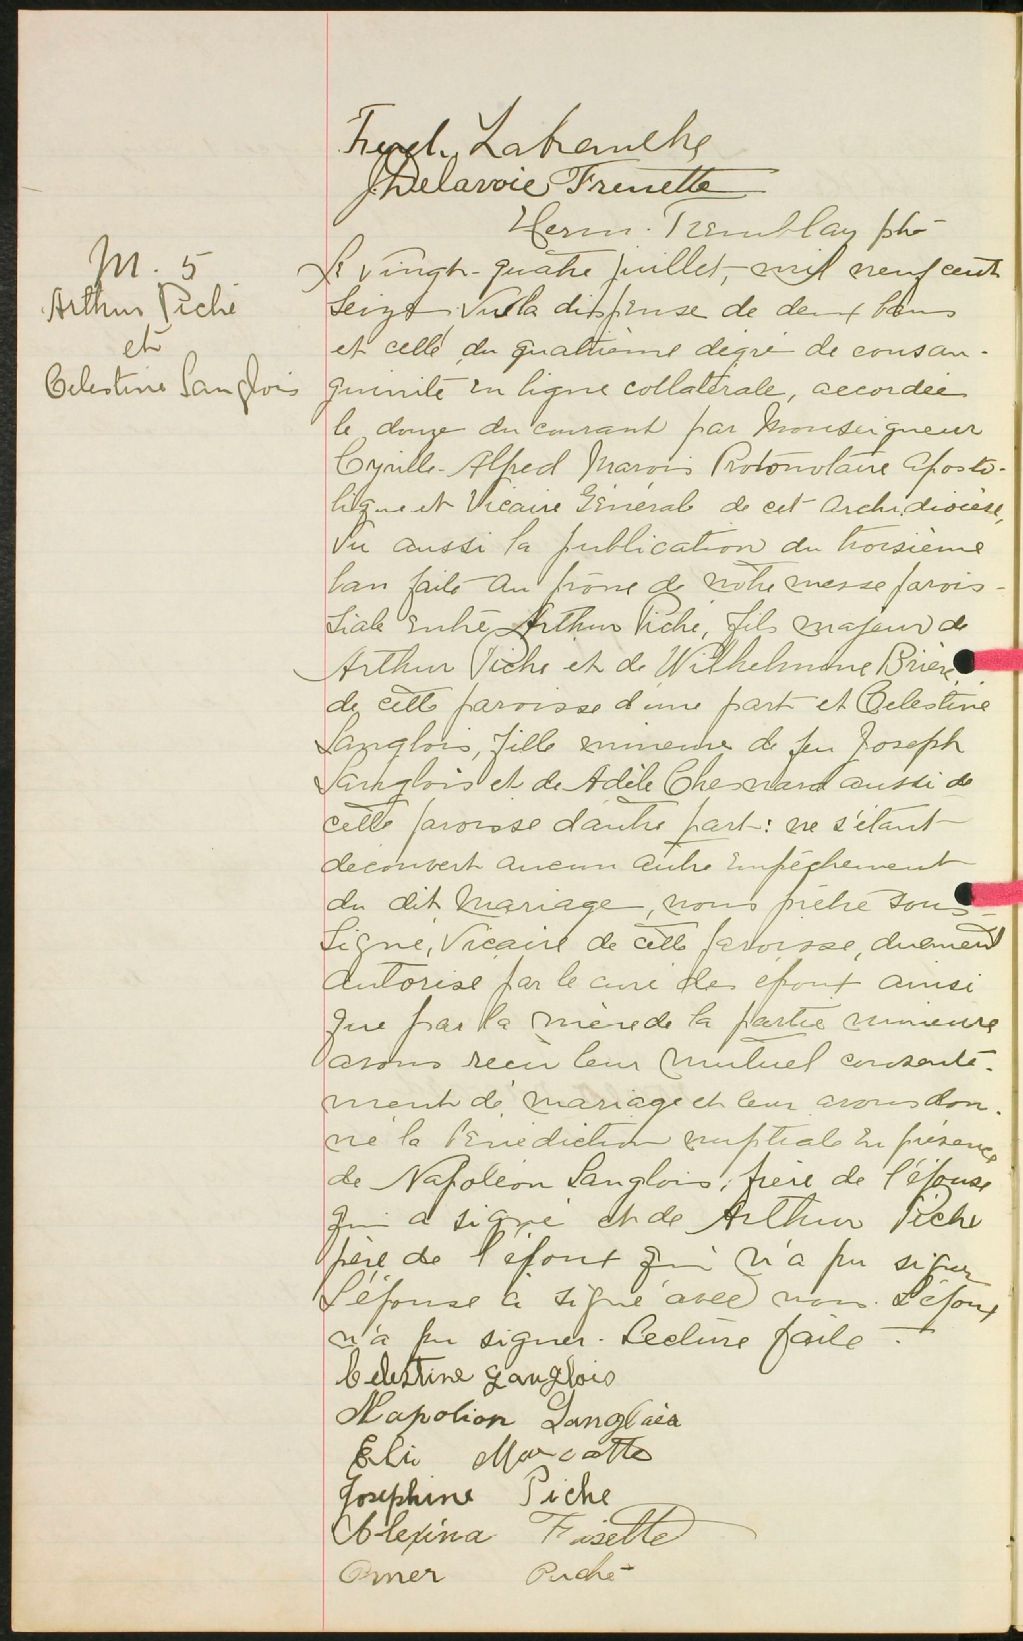 Fred. Latranche
J. Delavoie Frenette
Herm. Tremblay ptre
M. 5
Arthur Piché
et
Celestine Langlois
Le vingt-quatre juillet, mil neuf cent
seize Vu la dispense de deux bans
et celle du quatrième dégré de consan-
guinité en ligne collatérale, accordée
le douze du courant par Monseigneur
Cyrille-Alfred Marois Protonotaire aposto-
lique et Vicaire Général de cet archidiocèse,
Vu aussi la publication du troisième
ban faite au prône de notre messe parois-
siale entre Arthur Piché, fils majeur de
Arthur Piché et de Wilhelmine Brière
de cette paroisse d'une part et Celestine
Langlois, fille mineure de feu Joseph
Langlois et de Adèle Chesnard aussi de
cette paroisse d'autre part: ne s'étant
découvert aucun autre empêchement
du dit mariage, nous prêtre sous-
signé, Vicaire de cette paroisse, duement
autorisé par le curé des époux ainsi
que par la mère de la partie mineure
avons reçu leur mutuel consente-
ment de mariage et leur avons don-
né la bénédiction nuptiale en présence
de Napoléon Langlois, frère de l'épouse
qui a signé et de Arthur Piché
père de l'époux qui n'a pu signer
L'épouse a signé avec nous. L'époux
n'a pu signer. Lecture faite.
Celestine Langlois
Napolion Langlois
Eli Marcotte
Josephine Piche
Alexina Frisette
Omer Piché